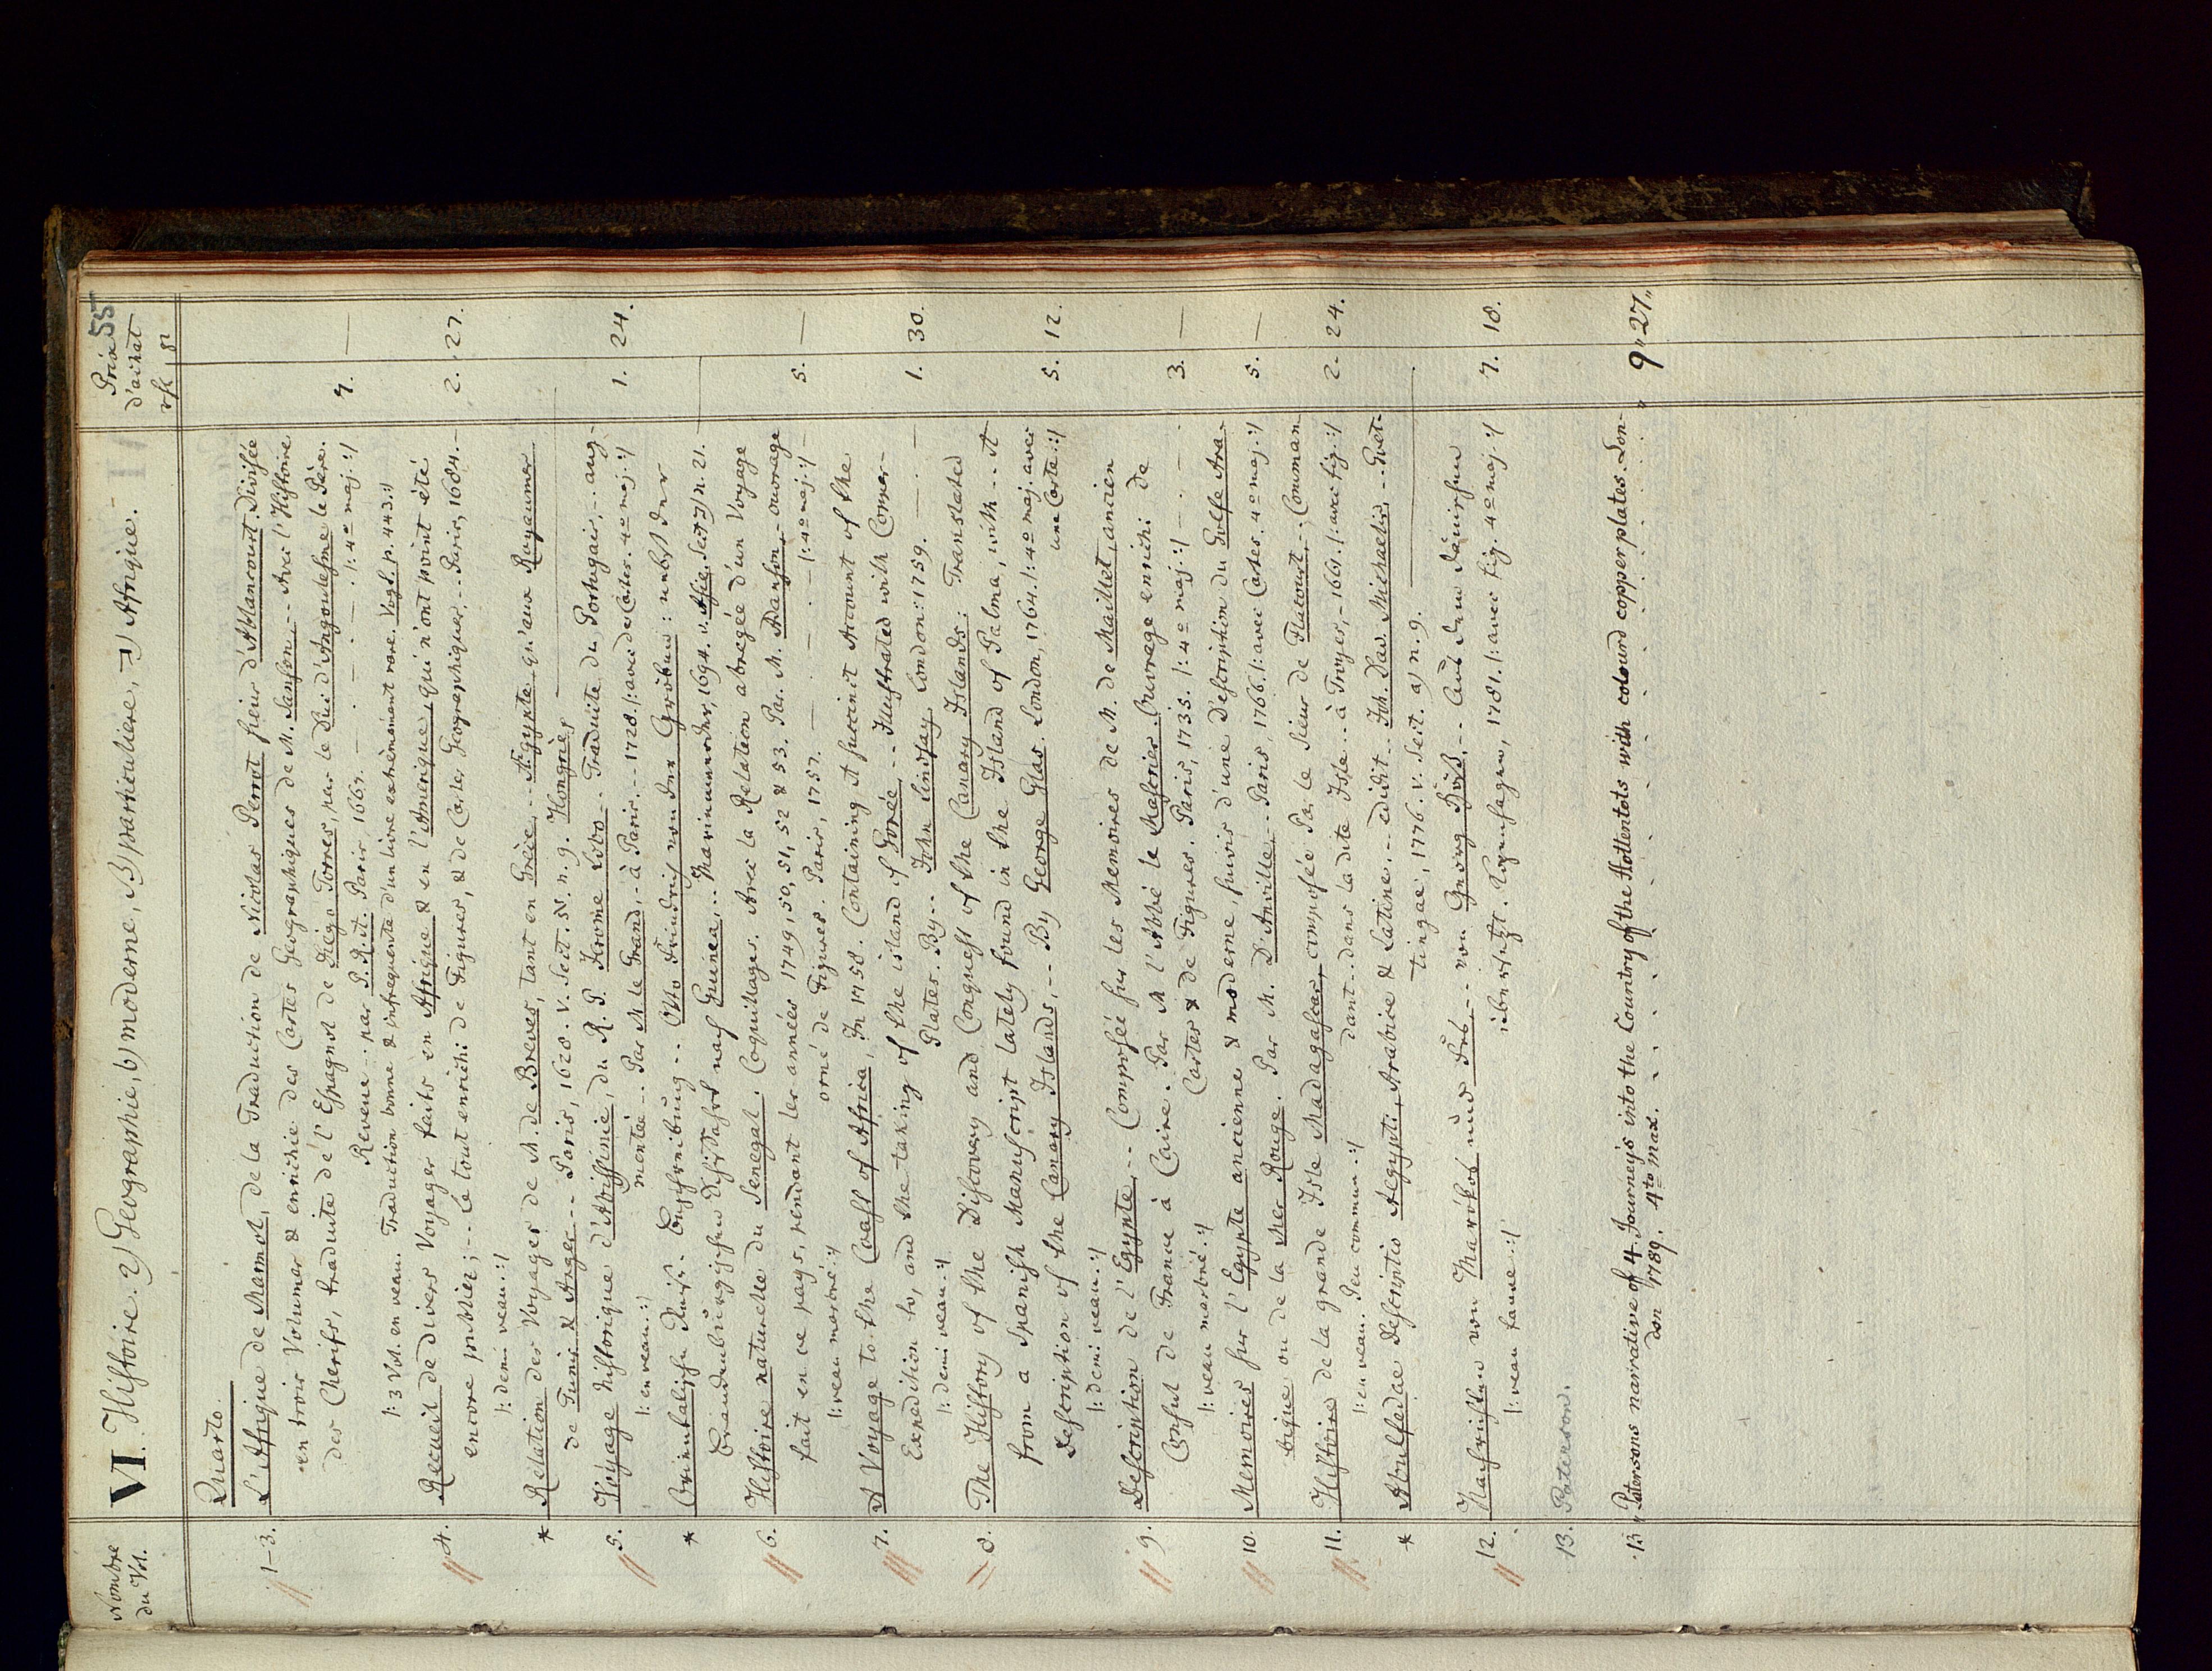 55
Nombre du Vol.
VI. Histoire. 2) Geographie, b) moderne, B) particuliere, ℷ) Afrique.
Prix d'achat
Quarto.
1-3. L'Afrique de Marmol, de la Traduction de Nicolas Perrot sieur d'Ablancourt. Divisée
en trois Volumes & enrichie des Cartes Geographiques de M. Sanson. -- Avec l'Histoire
des Cherifs, traduite de l'Espagnol de Diego Torres, par le Duc d'Angoulesme le Père.
Reveue .. par P. R. A. Paris, 1667. — . — . — . |: 4º maj. :| 9. —
|: 3 Vol. en veau. Traduction bonne & infrequente d'un livre extrèmement rare. Vogt. p. 443 :|
4. Recueil de divers Voyages faits en Afrique & en l'Amerique, qui n'ont point été
encore publiez; -- le tout enrichi de Figures, & de Cartes Geographiques. -- Paris, 1684. — 2. 27.
|: demi veau. :|
* Relation des Voyages de M. de Breves, tant en Grèce, -- Aegypte qu'aux Royaumes
de Tunis & Arger -- Paris, 1628. v. Seit. 55. n. 9. Hongrie
5. Voyage historique d'Abissinie, du R. P. Jerome Lobo -- Traduite du Portugais, -- aug-
mentée -- Par M. le Grand, -- à Paris. -- 1728. |: avec des Cartes. 4º maj. :| 1. 24.
|: en veau. :|
* Orientalische Reise-Beschreibung -- Otto Friedrich von der Gröben: nebst der
Brandenburgischen Schiffahrt nach Guinea, -- Marienwerder, 1694. v. Asie. Seit. 7) n. 21.
6. Histoire naturelle du Senegal. Coquillages. Avec la Relation abregée d'un Voyage
fait en ce pays, pendant les années 1749, 50, 51, 52 & 53. Par M. Adanson. - ouvrage
orné de Figures. Paris, 1757. — . — |: 4º maj. :| 5. —
|: veau marbré. :|
7. A Voyage to the Coast of Africa, In 1758. Containing A succinct Account of the
Expedition to, and the taking of the island of Gorée -- Illustrated with Copper-
Plates. By -- John Lindsay. London: 1759. — . — 1. 30.
|: demi veau. :|
8. The History of the Discovery and Conquest of the Canary Islands: Translated
from a Spanish Manuscript lately found in the Island of Palma, with -- A
Description of the Canary Islands, -- By George Glas. London, 1764. |: 4º maj. avec
une Carte :| 5. 12.
|: demi veau. :|
9. Description de l'Egypte, -- Composée sur les Memoires de M. de Maillet, ancien
Consul de France à Caire. Par M l'Abbé le Mascrier. Ouvrage enrichi de
Cartes & de Figures. Paris, 1735. |: 4º maj. :| — . — 3. —
|: veau marbré. :|
10. Memoires sur l'Egypte ancienne & moderne, suivis d'une Description du Golfe Ara-
bique ou de la Mer Rouge. Par M. D'Anville. -- Paris, 1766. |: avec Cartes. 4º maj. :| 5. —
11. Histoire de la grande Isle Madagascar, composée Par le Sieur de Flacourt, -- Comman-
dant -- dans ladite Isle -- à Troyes, - 1661. |: avec fig. :| 2. 24.
|: en veau. Peu commun. :|
* Abulfedae Descriptio Aegypti, Arabice & Latine. -- edidit -- Joh. Dav. Michaelis, -- Goet-
tingae, 1776. v. Seit. a) n. 9.
12. Nachrichten von Marókos und Fes -- von Georg Höst. -- Aus dem Dänischen
übersetzt. Kopenhagen, 1781. |: avec fig. 4º maj. :| 7. 18.
|: veau fauve. :|
13. Paterson.
13. Patersons narrative of 4 Journeys into the Country of the Hottentots with colourd copperplates. Lon-
don 1789. 4to max. 9 „ 27 „